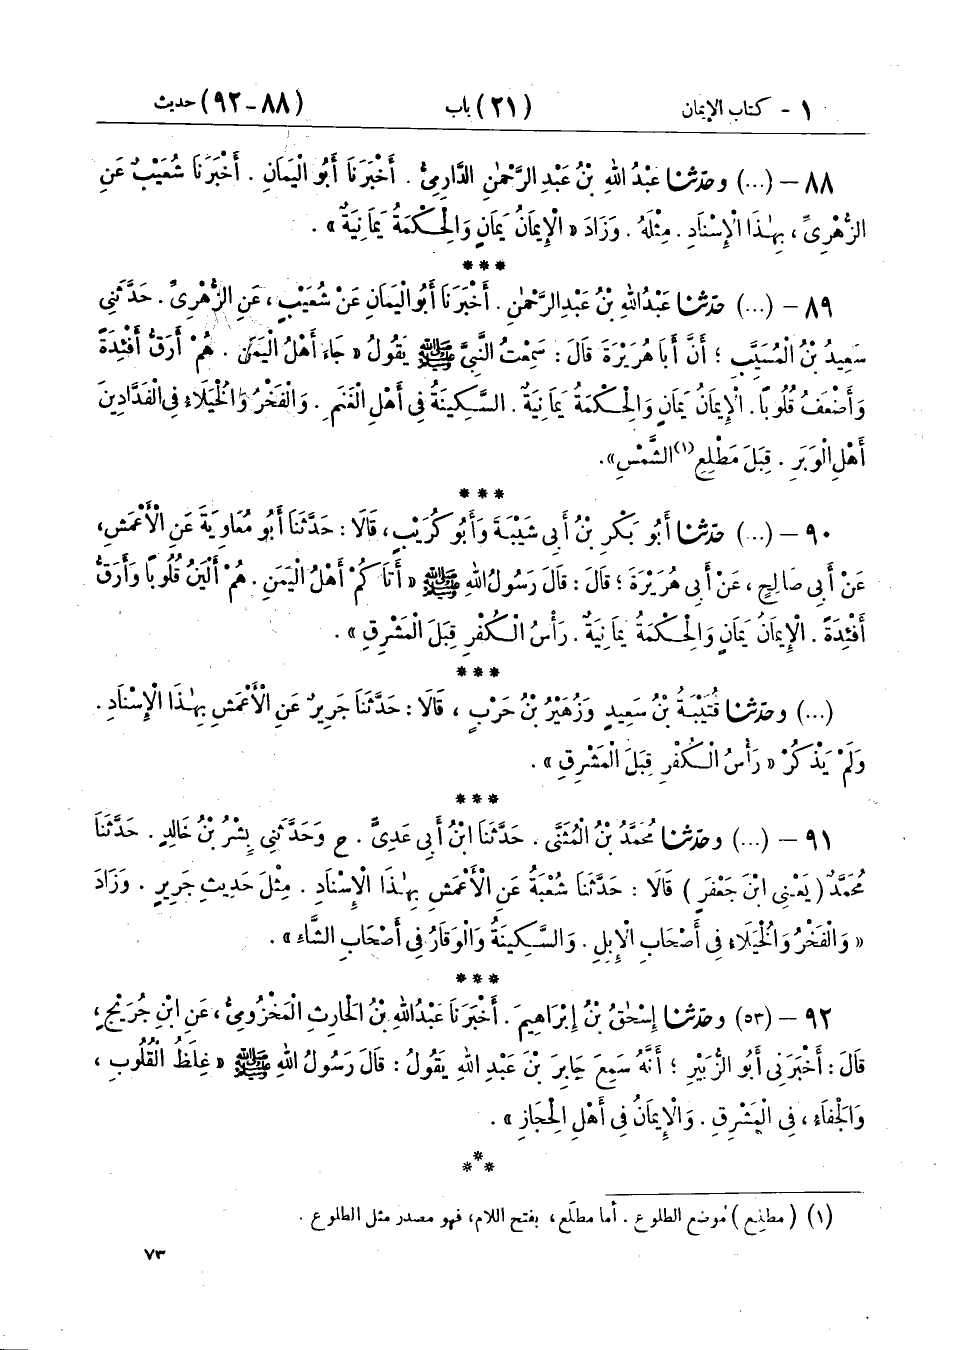 ١ - كتاب الإيمان (٢١) باب (٨٨-٩٢) حديث
٨٨ - (...) وحدثنا عَبْدُ اللهِ بْنُ عَبْدِ الرَّحْمٰنِ الدَّارِمِيُّ . أَخْبَرَنَا أَبُو الْيَمَانِ . أَخْبَرَنَا شُعَيْبٌ عَنِ
الزُّهْرِيِّ ، بِهٰذَا الْإِسْنَادِ . مِثْلَهُ . وَزَادَ « الْإِيمَانُ يَمَانٍ وَالْحِكْمَةُ يَمَانِيَةٌ » .
***
٨٩ - (...) حدثنا عَبْدُ اللهِ بْنُ عَبْدِ الرَّحْمٰنِ . أَخْبَرَنَا أَبُو الْيَمَانِ عَنْ شُعَيْبٍ ، عَنِ الزُّهْرِيِّ . حَدَّثَنِي
سَعِيدُ بْنُ الْمُسَيَّبِ ؛ أَنَّ أَبَا هُرَيْرَةَ قَالَ : سَمِعْتُ النَّبِيَّ ﷺ يَقُولُ « جَاءَ أَهْلُ الْيَمَنِ . هُمْ أَرَقُّ أَفْئِدَةً
وَأَضْعَفُ قُلُوبًا . الْإِيمَانُ يَمَانٍ وَالْحِكْمَةُ يَمَانِيَةٌ . السَّكِينَةُ فِي أَهْلِ الْغَنَمِ . وَالْفَخْرُ وَالْخُيَلَاءُ فِي الْفَدَّادِينَ
أَهْلِ الْوَبَرِ . قِبَلَ مَطْلِعِ (١) الشَّمْسِ» .
***
٩٠ - (...) حدثنا أَبُو بَكْرِ بْنُ أَبِي شَيْبَةَ وَأَبُو كُرَيْبٍ ، قَالَا : حَدَّثَنَا أَبُو مُعَاوِيَةَ عَنِ الْأَعْمَشِ،
عَنْ أَبِي صَالِحٍ ، عَنْ أَبِي هُرَيْرَةَ ؛ قَالَ : قَالَ رَسُولُ اللهِ ﷺ « أَتَاكُمْ أَهْلُ الْيَمَنِ . هُمْ أَلْيَنُ قُلُوبًا وَأَرَقُّ
أَفْئِدَةً . الْإِيمَانُ يَمَانٍ وَالْحِكْمَةُ يَمَانِيَةٌ . رَأْسُ الْكُفْرِ قِبَلَ الْمَشْرِقِ » .
***
(...) وحدثنا قُتَيْبَةُ بْنُ سَعِيدٍ وَزُهَيْرُ بْنُ حَرْبٍ ، قَالَا : حَدَّثَنَا جَرِيرٌ عَنِ الْأَعْمَشِ بِهٰذَا الْإِسْنَادِ .
وَلَمْ يَذْكُرْ « رَأْسُ الْكُفْرِ قِبَلَ الْمَشْرِقِ » .
***
٩١ - (...) وحدثنا مُحَمَّدُ بْنُ الْمُثَنَّى . حَدَّثَنَا ابْنُ أَبِي عَدِيٍّ . ح وَحَدَّثَنِي بِشْرُ بْنُ خَالِدٍ . حَدَّثَنَا
مُحَمَّدٌ ( يَعْنِي ابْنَ جَعْفَرٍ ) قَالَا : حَدَّثَنَا شُعْبَةُ عَنِ الْأَعْمَشِ بِهٰذَا الْإِسْنَادِ . مِثْلَ حَدِيثِ جَرِيرٍ . وَزَادَ
« وَالْفَخْرُ وَالْخُيَلَاءُ فِي أَصْحَابِ الْإِبِلِ . وَالسَّكِينَةُ وَالْوَقَارُ فِي أَصْحَابِ الشَّاءِ » .
***
٩٢ - (٥٣) وحدثنا إِسْحٰقُ بْنُ إِبْرَاهِيمَ . أَخْبَرَنَا عَبْدُ اللهِ بْنُ الْحَارِثِ الْمَخْزُومِيُّ ، عَنِ ابْنِ جُرَيْجٍ ،
قَالَ : أَخْبَرَنِي أَبُو الزُّبَيْرِ ؛ أَنَّهُ سَمِعَ جَابِرَ بْنَ عَبْدِ اللهِ يَقُولُ : قَالَ رَسُولُ اللهِ ﷺ « غِلَظُ الْقُلُوبِ ،
وَالْجَفَاءُ ، فِي الْمَشْرِقِ . وَالْإِيمَانُ فِي أَهْلِ الْحِجَازِ » .
***
(١) ( مطلِع ) موضع الطلوع . أما مطلَع ، بفتح اللام، فهو مصدر مثل الطلوع .
٧٣